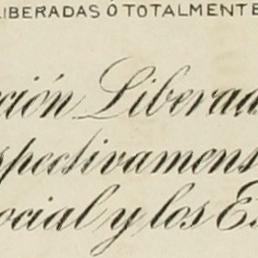 LIBERADAS Ó TOTALMENTE
ción Liberad
spectivamen
ocial y los E